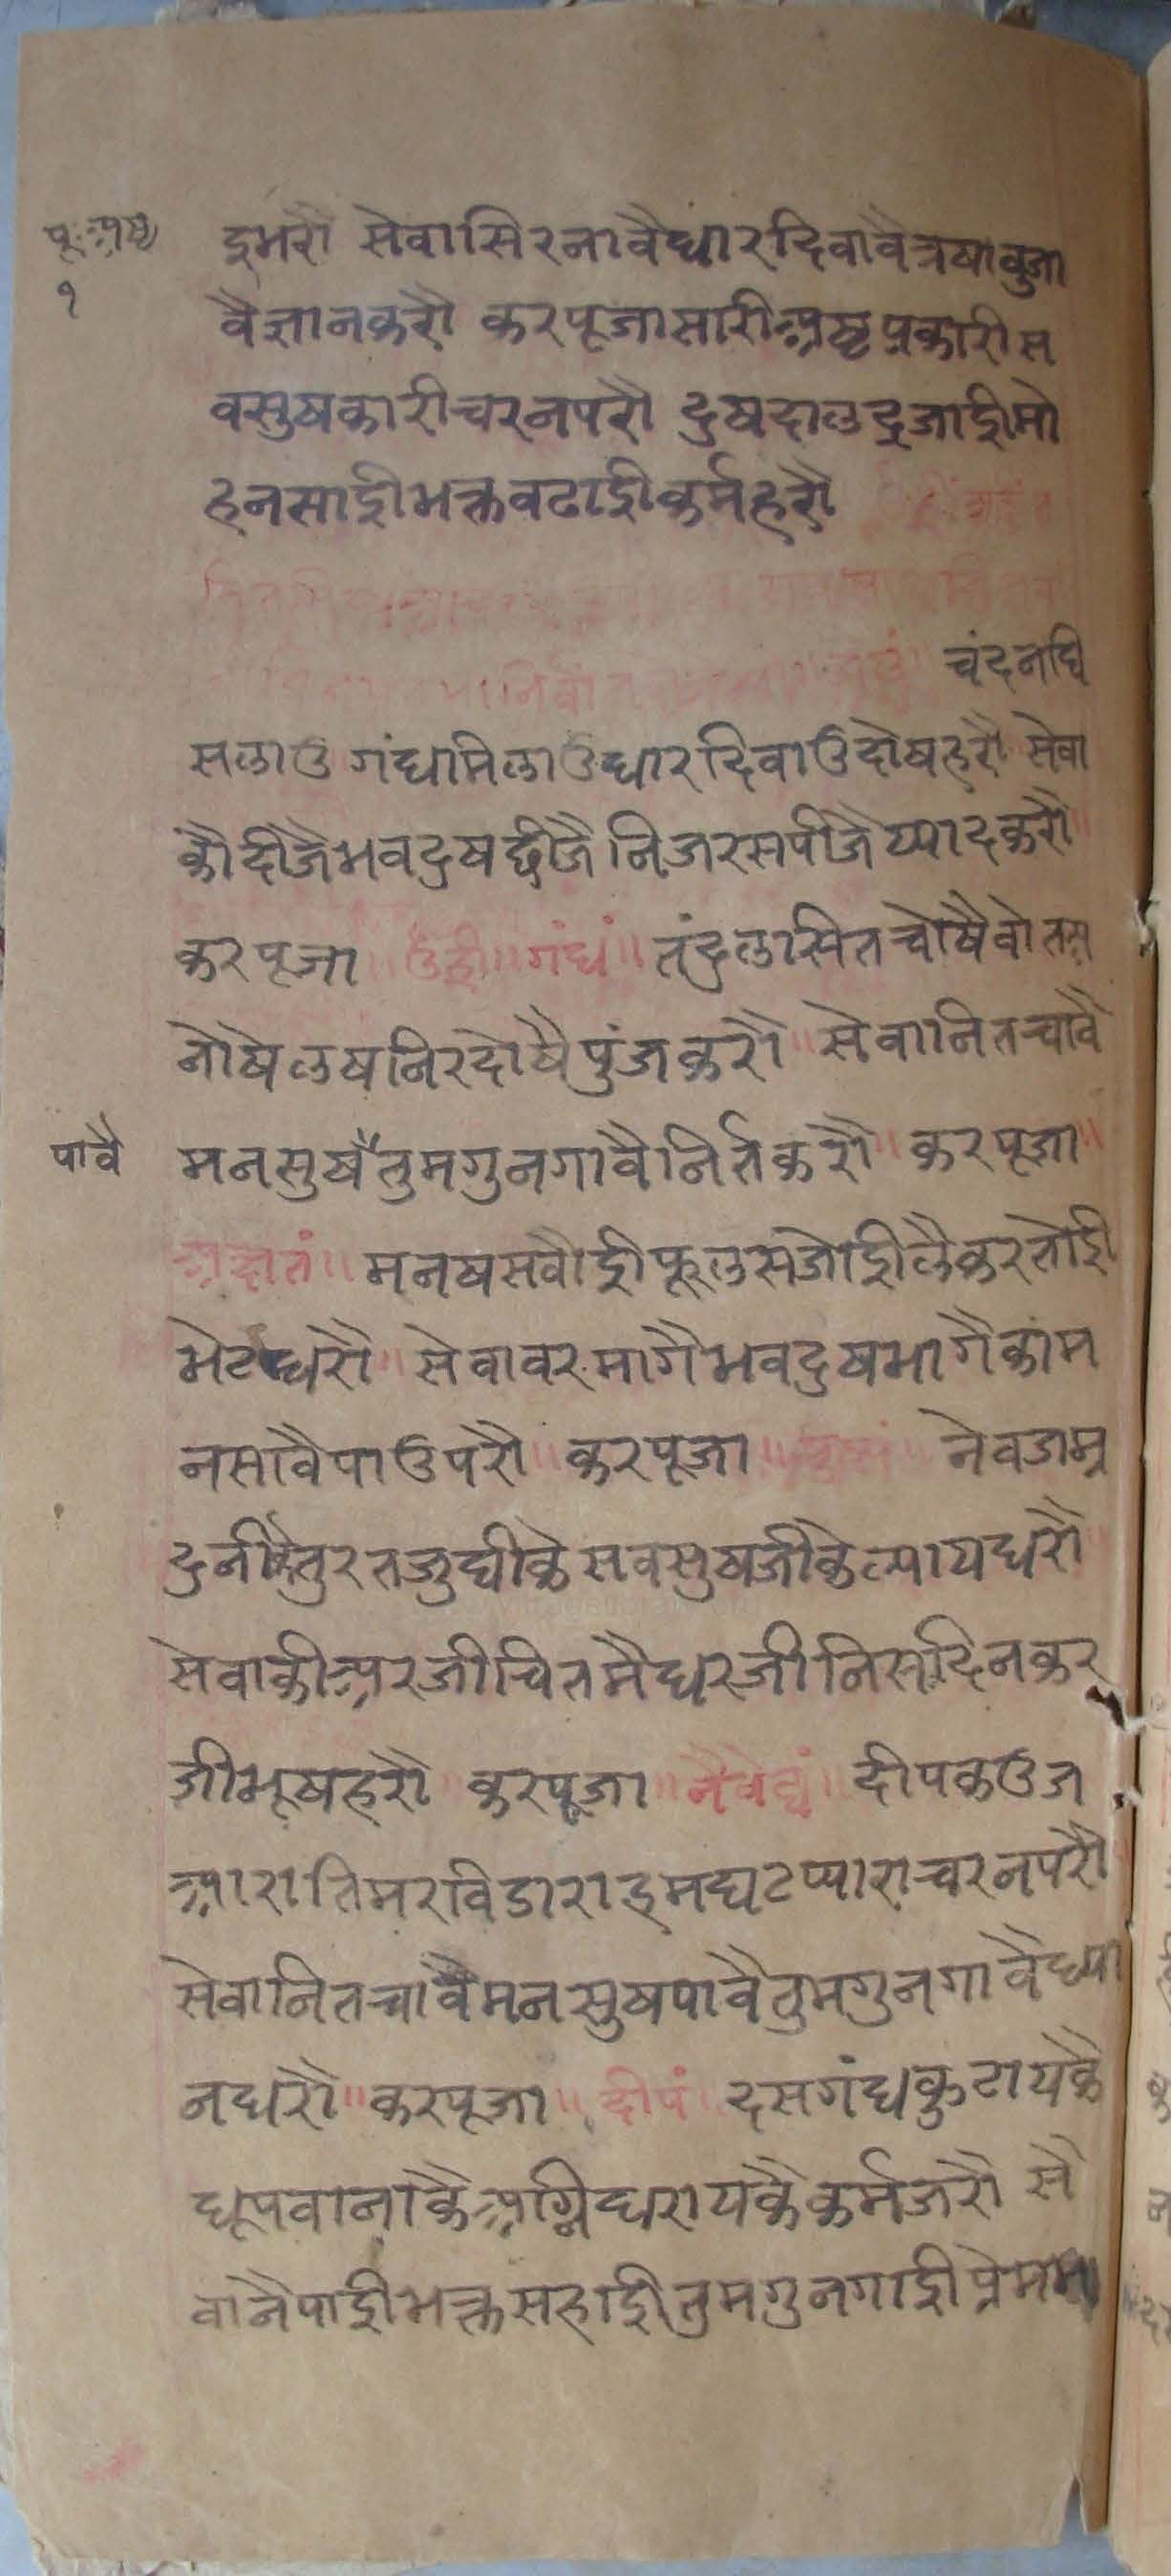 पू॰अष्ट
१
इमरौ सेवासिरनावैधारदिवावैत्रषावुजा
वैज्ञानकरौ करपूजासारीअष्टप्रकारीस
वसुषकारीचरनपरौ दुषदालद्रजाईमो
हनसाईभक्तवढाईकर्महरौ
चंदनघि
सलाउ गंधमिलाउधारदिवाउदोषहरौ सेवा
कौदीजैभवदुषछीजैनिजरसपीजैय्यादकरौ
करपूजा ॥ उँह्री ॥ गंधं ॥ तंदुलासितचोषैवोतस
नोषैलषनिरदोषैपुंजकरौ ॥ सेवानितचावै
पावै
मनसुषैतुमगुनगावैनिर्तकरौ ॥ करपूजा ॥
अक्षतं ॥ मनषसवोईफूलसजोईलैकरतोई
भेटधरौ ॥ सेवावरमागैभवदुषभागैकाम
नसावैपाउपरौ ॥ करपूजा ॥ नेवजम्र
दुनीकैतुरतजुघीकेसवसुषजीकेल्यायधरौ ॥
सेवाकीअरजीचितमैधरजीनिसदिनकर
जीभूषहरौ करपूजा नैवेद्यं ॥ दीपकउज
आरातिमरविडाराइमघटप्याराचरनपरौ
सेवानितचावैमनसुषपावैतुमगुनगावैध्या
नधरौ ॥ करपूजा ॥ दीपं ॥ दसगंधकुटायकै
धूपवानाकैअग्निधरायकैकर्मजरौ से
वानैपाईभक्तसहाईतुमगुनगाईप्रेम